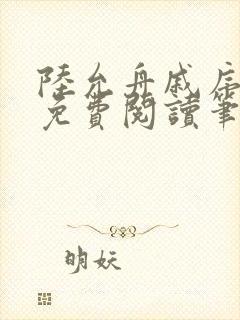 陸允舟戚
免費閱讀筆
明妖